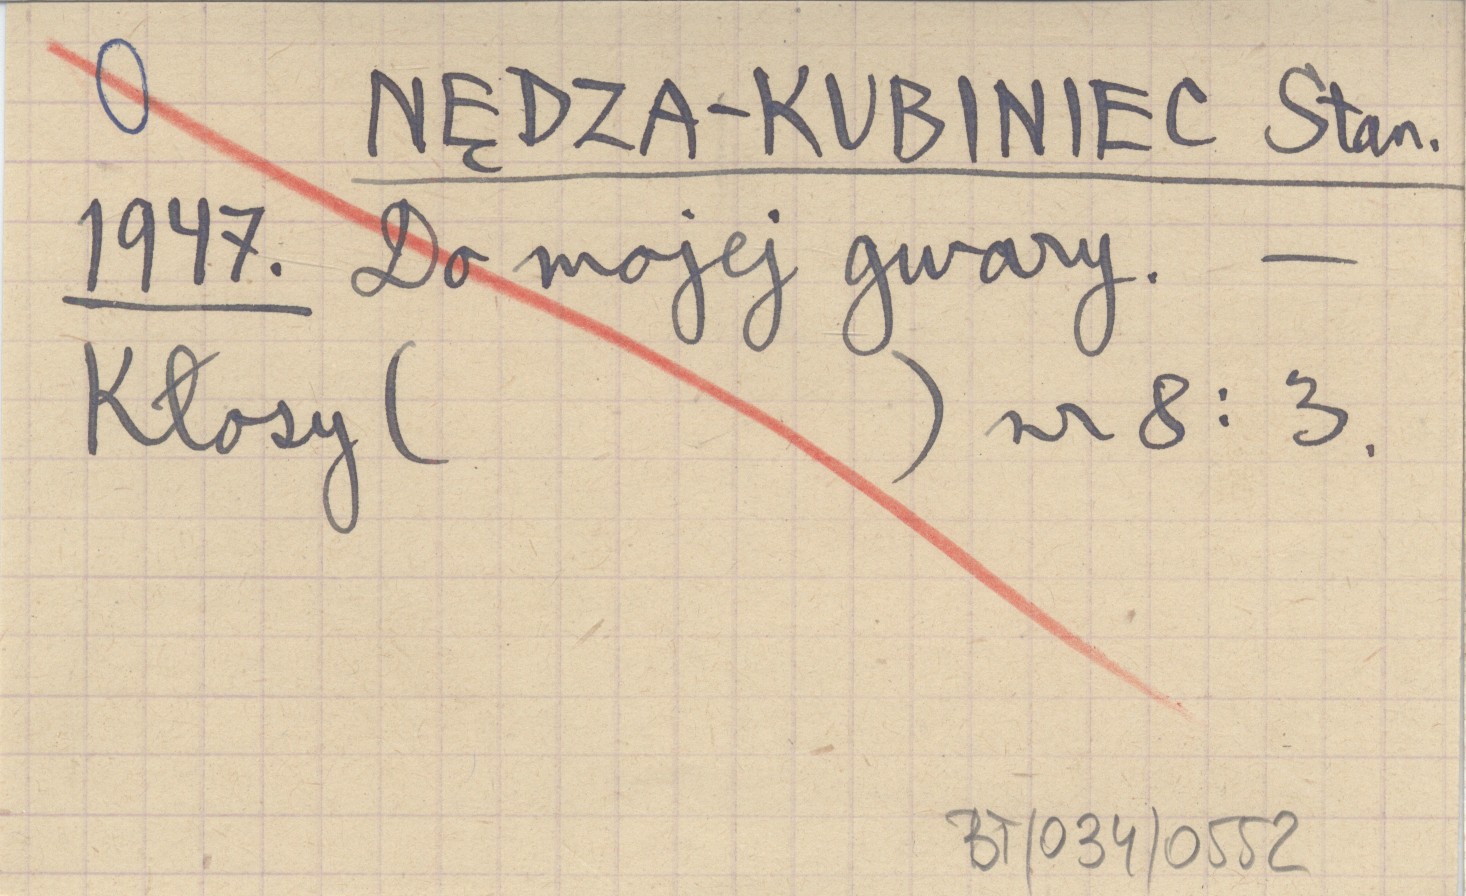 0 NĘDZA-KUBINIEC Stan.
1947. Do mojej gwary. —
Kłosy ( ) nr 8: 3.
BT/034/0552